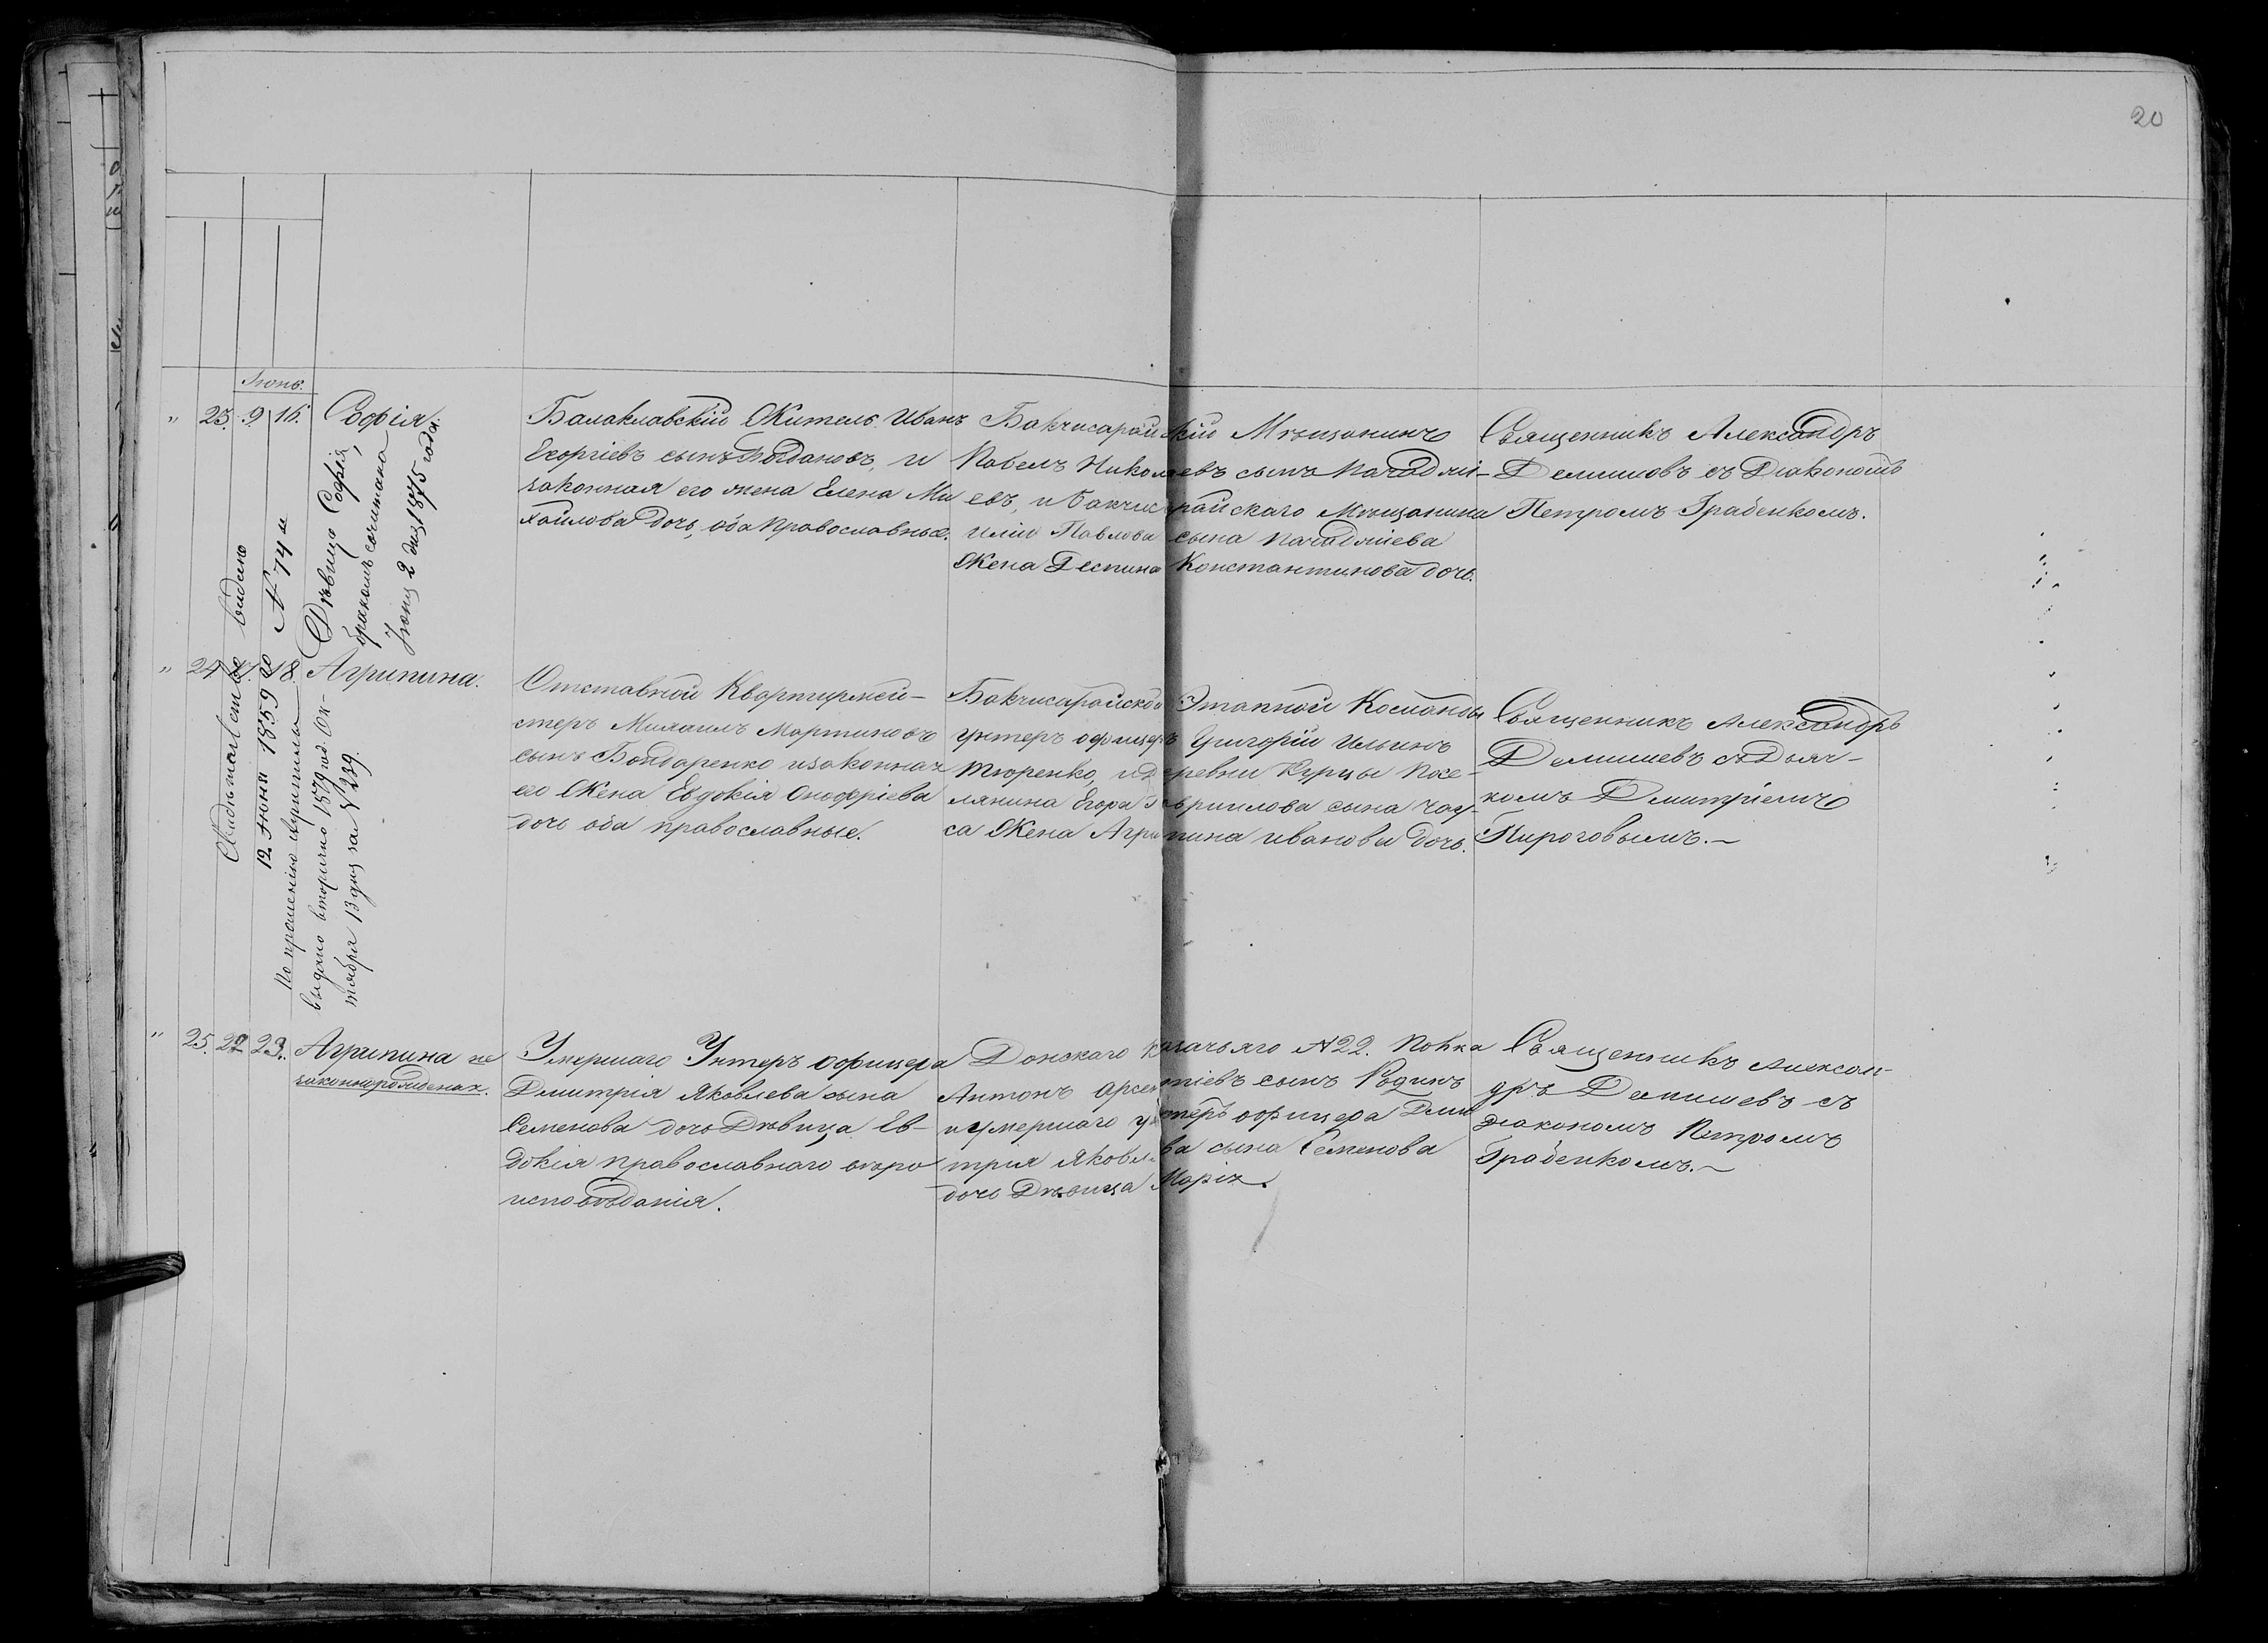 20
Іюнь.
" 23. 9. 16. Софія.
Балаклавскій Житель Иванъ
Егоріевъ сынъ Богдановъ, и
законная его жена Елена Ми
хайлова дочь, оба православные.
Бакчисарайскій Мѣщанинъ
Павелъ Николаевъ сынъ
евъ, и бакчисарайскаго Мѣщанина
Иліи Павлова сына
Жена Деспина Константинова дочь.
Священникъ Александръ
Демишевъ съ Діакономъ
Петромъ Грабенкомъ.
Дѣвица Софія,
бракомъ сочитана
Іюня 2 дня 1875 года.
Свидѣтельство видано
12. Іюня 1859 го № 74 м
" 24. 18. Агрипина.
Отставной Квартирмей-
стеръ Михаилъ Мартиновъ
сынъ Бондаренко изаконная
его Жена Евдокія Онофріева
дочь оба православные.
Бакчисарайской Этапной Команды
унтеръ офицеръ Григорій Ильинъ
Тюренко, и деревни Курцы Посе-
лянина Егора Гавриилова сына Чау-
са Жена Агрипина иванова дочь.
Священникъ Александръ
Демишевъ съ Дьяч-
комъ Дмитріемъ
Пироговымъ.–
По прошенію
выдано вторично 1879 год. Ок-
тября 13 дня за № 239.
" 25. 22 23. Агрипина не
законнорожденая.
Умершаго Унтеръ офицера
Дмитрія Яковлева сына
Семенова дочь Дѣвица Ев-
докія православнаго вѣро
исповѣданія.
Донскаго Казачьяго №22. Полка
Антонъ Арсентіевъ сынъ Родинъ
и умершаго унтеръ офицера Дми
трія Яковлева сына Семенова
дочь Дѣвица Марія.
Священникъ Алексан-
дръ Демишевъ съ
діакономъ Петромъ
Грабенкомъ.–